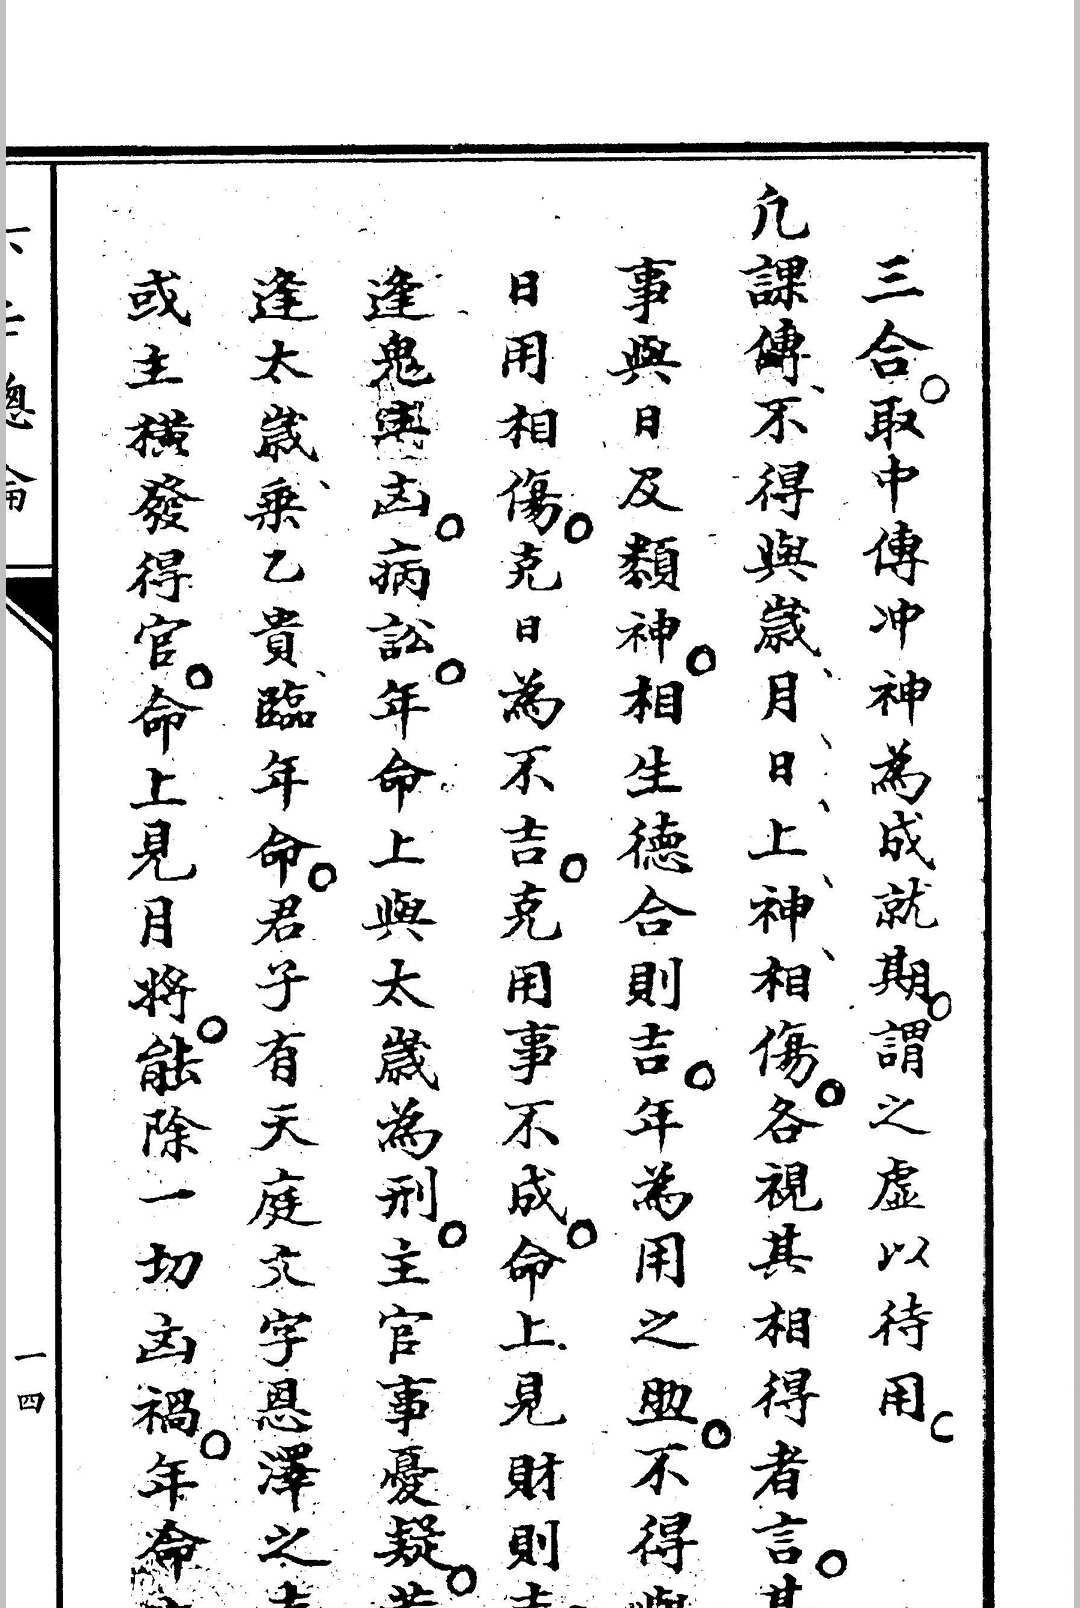 三合○取中傳冲神為成就期○謂之虛以待用○
凢課傳不得與歲月日上神相傷○各視其相得者言○其
事與日及類神○相生德合則吉○年為用之助○不得與
日用相傷○克日為不吉○克用事不成○命上見財則吉
逢鬼與凶○病訟○年命上與太歲為刑○主官事憂疑○若
逢太歲乗乙貴臨年命○君子有天庭文字恩澤之
或主橫發得官○命上見月將○能除一切凶禍○年命
總論
一四